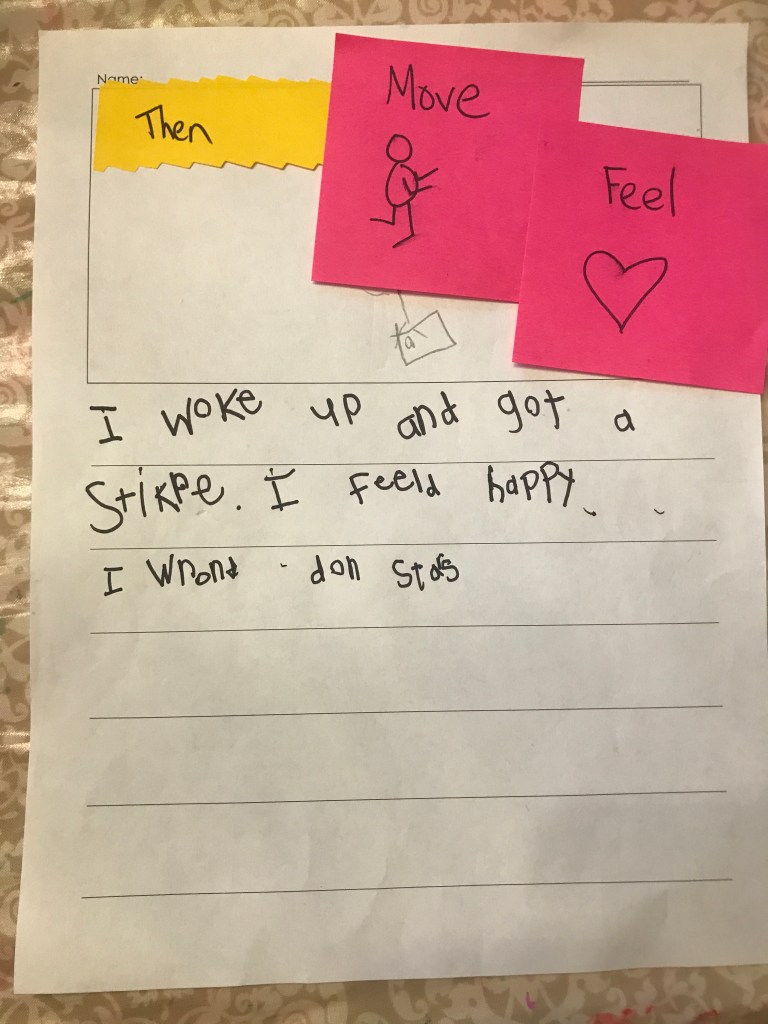 Name:
Then
Move
Feel
a
I woke up and got a
Stikpe. I Feeld happy.
I Wrond don stars